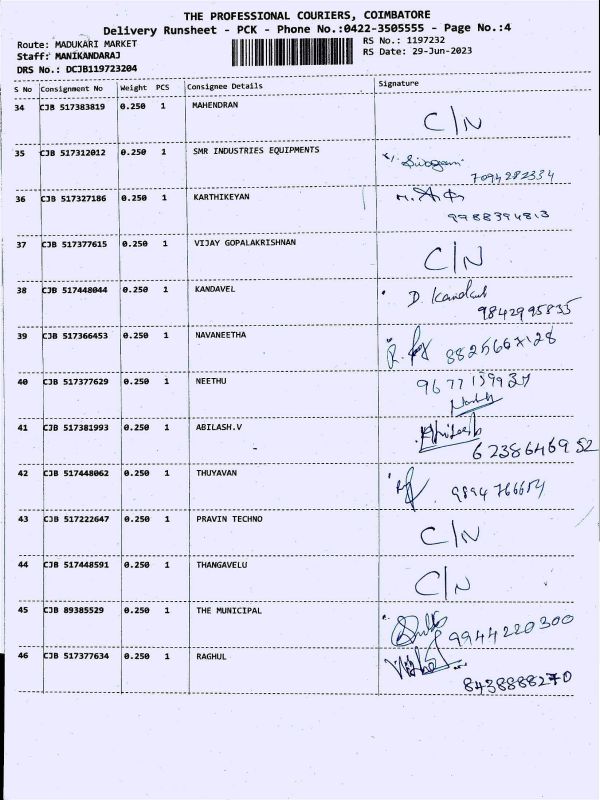 THE PROFESSIONAL COURIERS, COIMBATORE
Delivery Runsheet - PCK - Phone No.:0422-3505555 - Page No.:4
Route: MADUKARI MARKET RS No.: 1197232
Staff: MANIKANDARAJ RS Date: 29-Jun-2023
DRS No.: DCJB119723204
S No Consignment No Weight PCS Consignee Details Signature
34 CJB 517383819 0.250 1 MAHENDRAN C/N
35 CJB 517312012 0.250 1 SMR INDUSTRIES EQUIPMENTS
7094282334
36 CJB 517327186 0.250 1 KARTHIKEYAN
9988394813
37 CJB 517377615 0.250 1 VIJAY GOPALAKRISHNAN C/N
38 CJB 517448044 0.250 1 KANDAVEL D. Kandavel
9842995835
39 CJB 517366453 0.250 1 NAVANEETHA 8825667128
40 CJB 517377629 0.250 1 NEETHU
41 CJB 517381993 0.250 1 ABILASH.V Abilash
6238646952
42 CJB 517448062 0.250 1 THUYAVAN
43 CJB 517222647 0.250 1 PRAVIN TECHNO C/N
44 CJB 517448591 0.250 1 THANGAVELU C/N
45 CJB 89385529 0.250 1 THE MUNICIPAL 9944220300
46 CJB 517377634 0.250 1 RAGHUL
8438888270